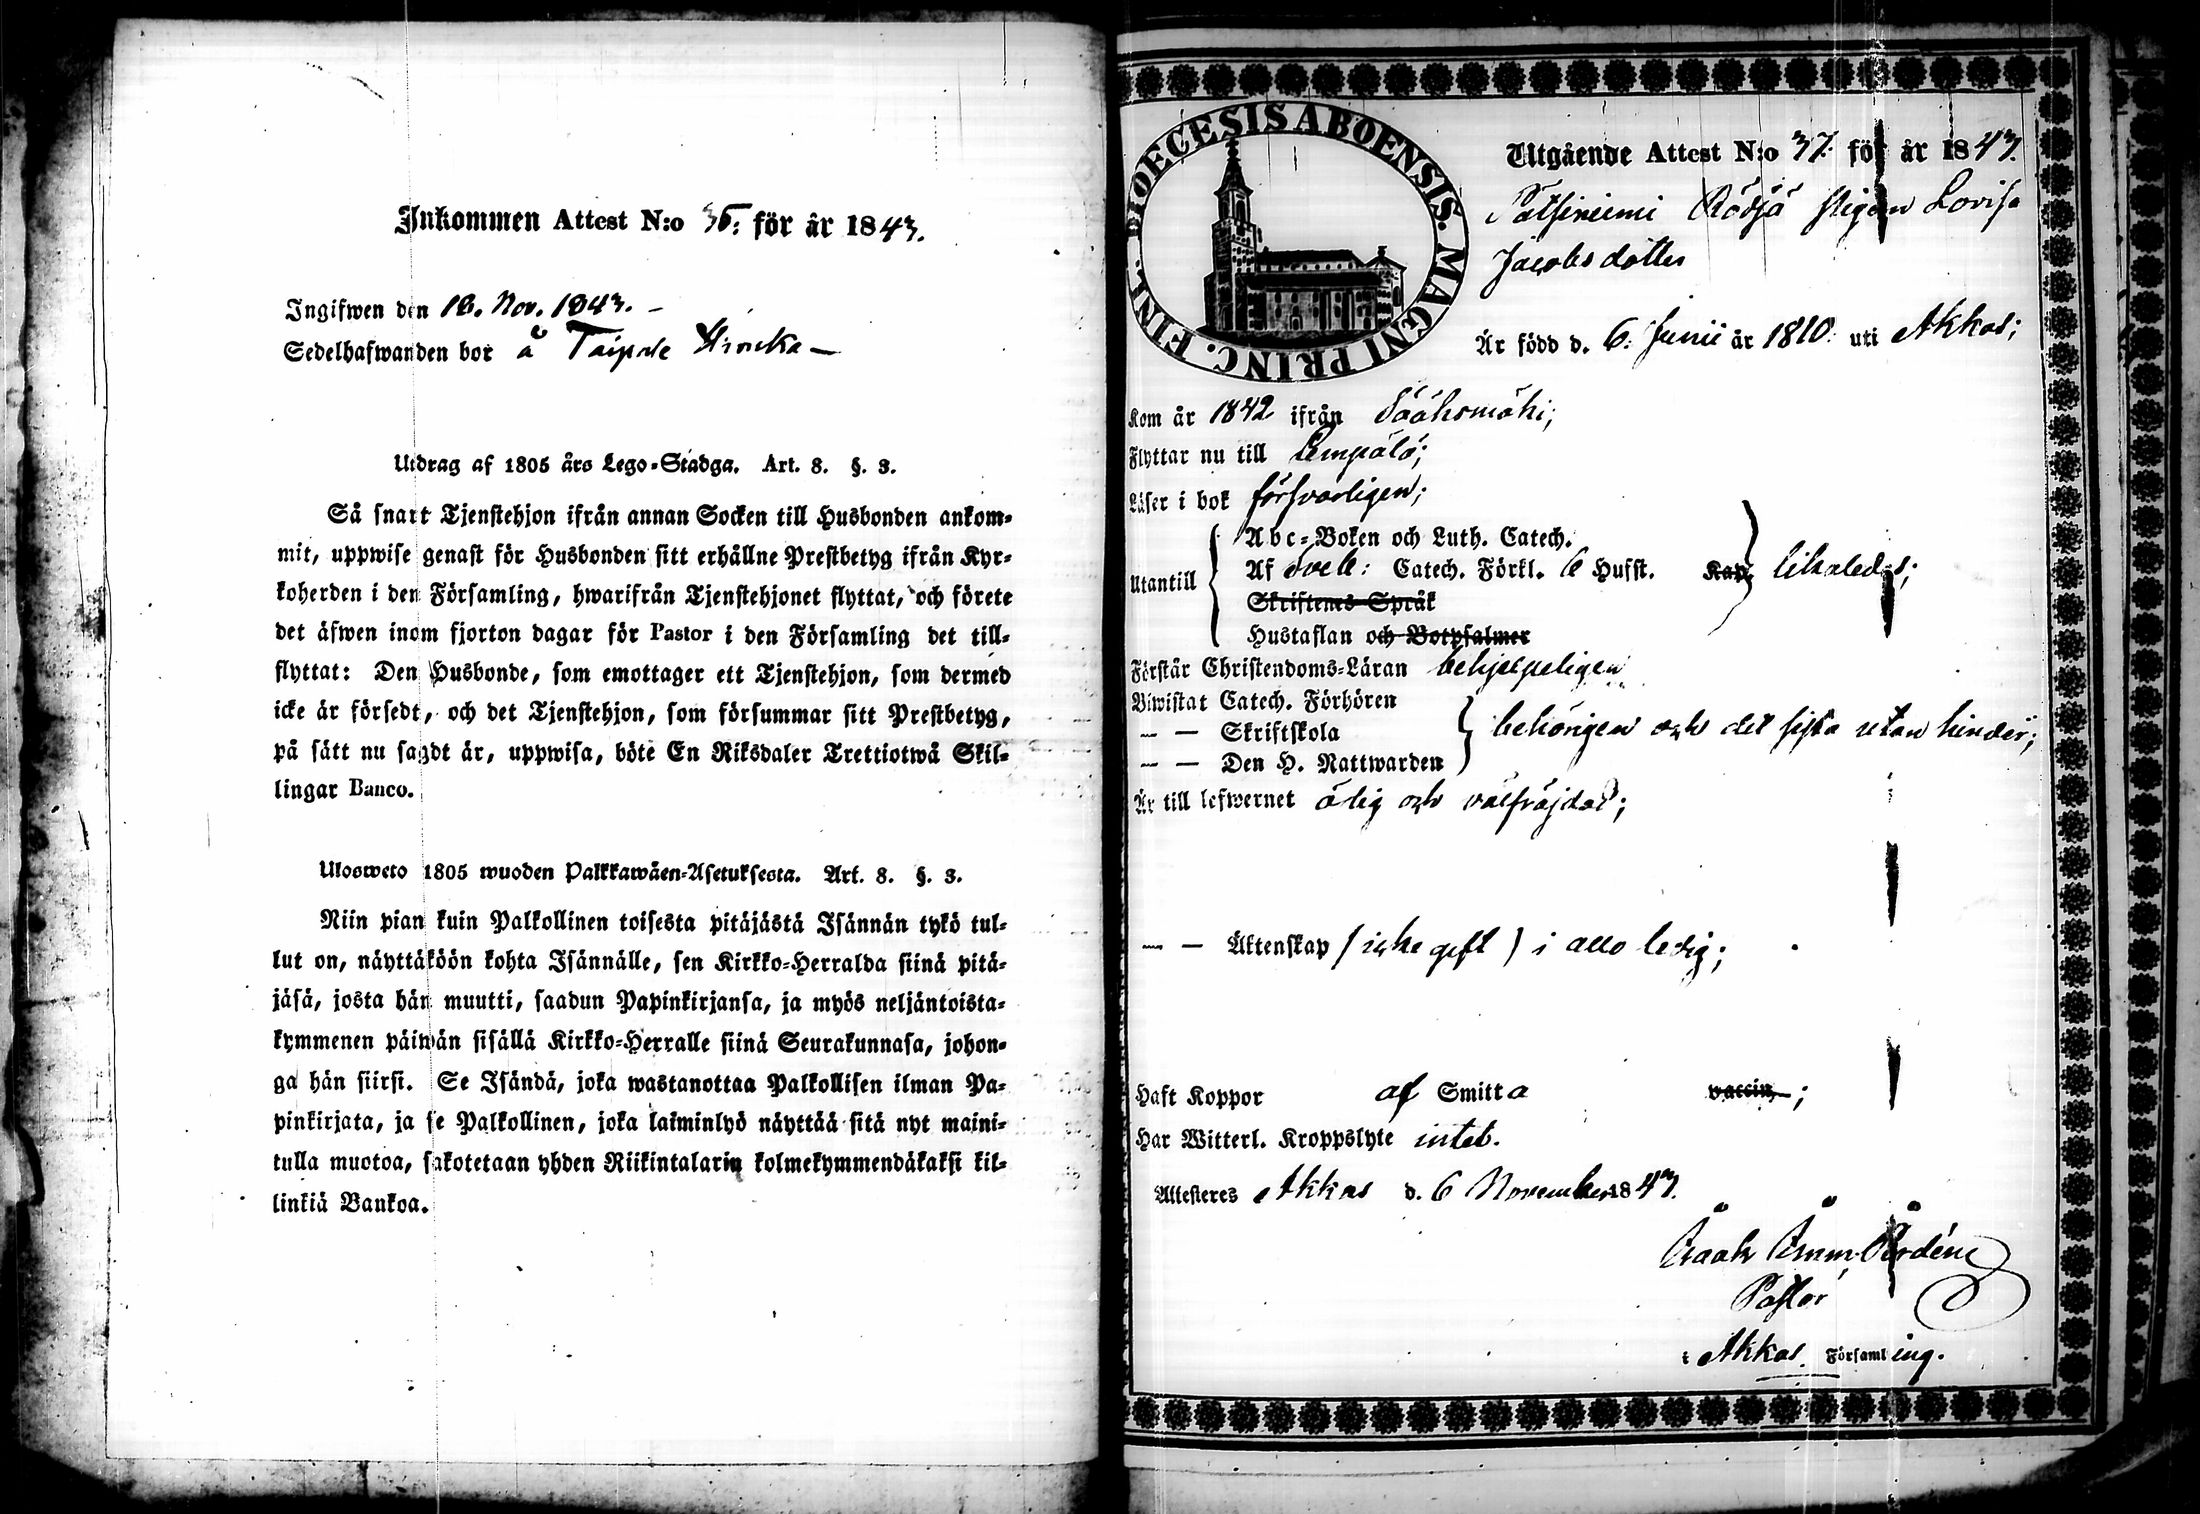 Inkommen Attest N:o 36: för år 1843.
Ingifwen den 18. Nov. 1843. –
Sedelhafwanden bor å Taipale –
Utdrag af 1805 års Lego-Stadga. Art. 8. §. 3.
Så snart Tjenstehjon ifrån annan Socken till Husbonden ankom-
mit, uppwise genast för Husbonden sitt erhållne Prestbetyg ifrån Kyr-
koherden i den Församling, hwarifrån Tjenstehjonet flyttat, och förete
det äfwen inom fjorton dagar för Pastor i den Församling det till-
flyttat: Den Husbonde, som emottager ett Tjenstehjon, som dermed
icke är försedt, och det Tjenstehjon, som försummar sitt Prestbetyg,
på sätt nu sagdt är, uppwisa, böte En Riksdaler Trettiotwå Skil-
lingar Banco.
Ulosweto 1805 wuoden Palkkawäen-Asetuksesta. Art. 8. §. 3.
Niin pian kuin Palkollinen toisesta pitäjästä Isännän tykö tul-
lut on, näyttäköön kohta Isännälle, sen Kirkko-Herralda siinä pitä-
jäsä, josta hän muutti, saadun Papinkirjansa, ja myös neljäntoista-
kymmenen päiwän sisällä Kirkko-Herralle siinä Seurakunnasa, johon-
ga hän siirsi. Se Isändä, joka wastanottaa Palkollisen ilman Pa-
pinkirjata, ja se Palkollinen, joka laiminlyö näyttää sitä nyt maini-
tulla muotoa, sakotetaan yhden Riikintalarin kolmekymmendäkaksi kil-
linkiä Bankoa.
DIOECESIS ABOENSIS. MAGNI PRINC. FINL.
Utgående Attest N:o 37. för år 1843.
Rödjä Pigan Lovisa
Jacobsdotter
Är född d. 6. Junii år 1810. uti Akkas;
Kom år 1842 ifrån Sääksmäki;
Flyttar nu till Lempälä;
Läser i bok försvarligen;
Utantill
Abc-Boken och Luth. Catech.
Af Sveb: Catech. Förkl. 6 Hufst. Kap. likaledes;
Skriftenes Språk
Hustaflan och Botpsalmer
Förstår Christendoms-Läran behjelpeligen
Biwistat Catech. Förhören
— — Skriftskola behörigen och det sista utan hinder;
— — Den H. Nattwarden
Är till lefwernet ärlig och välfräjdad;
— — Äktenskap (icke gift) i allo ledig;
Haft Koppor af Smitta vaccin. ;
Har Witterl. Kroppslyte intet.
Attesteres Akkas d. 6 November 1843.
Isaak Imm. Nordén
Pastor
i Akkas Församling.